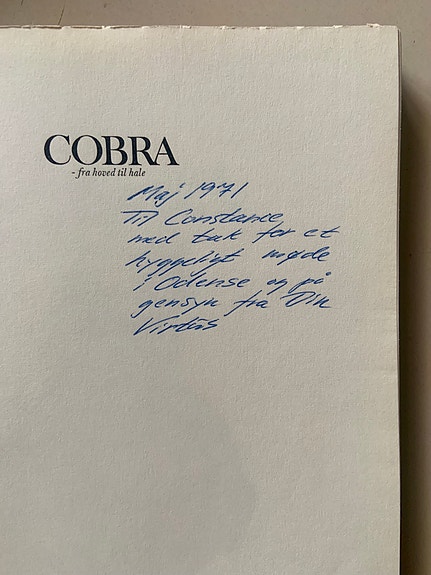 COBRA
- fra hoved til hale
Maj 1971
Til Constance
med tak for et
hyggeligt møde
i Odense og på
gensyn fra Din